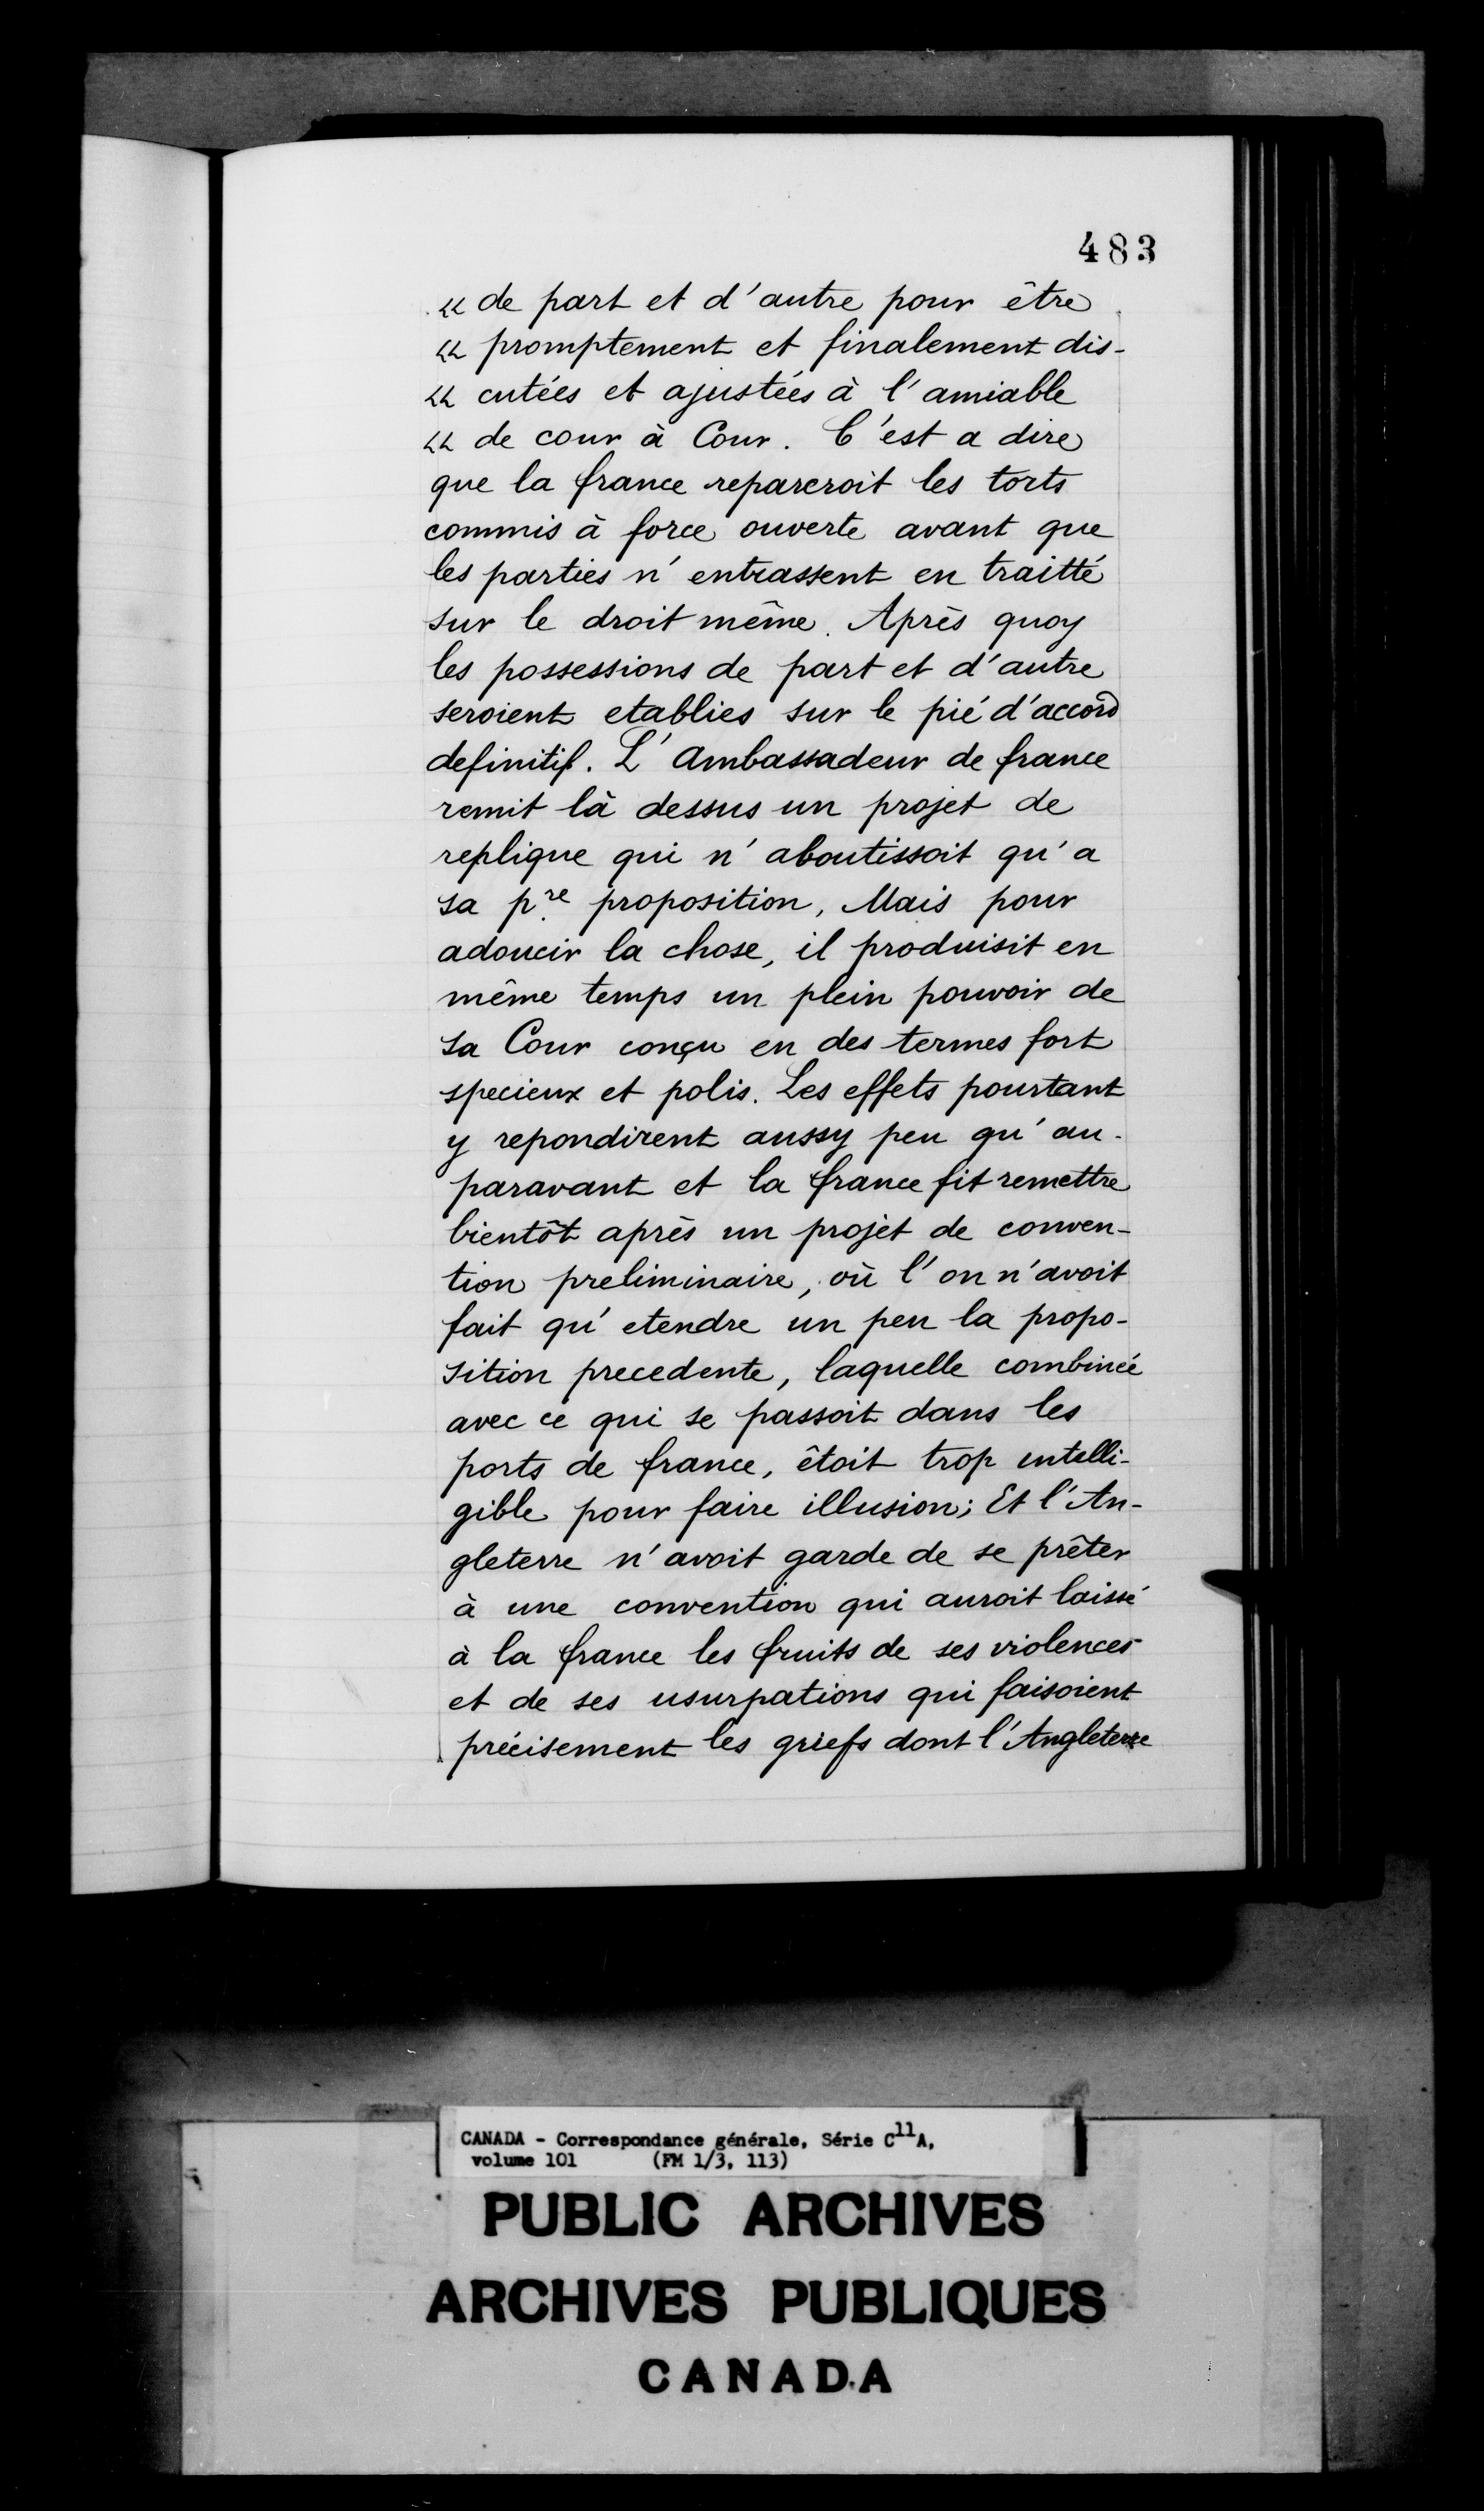 483
« de part et d'autre pour être
« promptement et finalement dis-
« cutées et ajustées à l'amiable
« de cour à Cour. C'est a dire
que la france repareroit les torts
commis à force ouverte avant que
les parties n'entrassent en traitté
sur le droit même. Après quoy
les possessions de part et d'autre
seroient etablies sur le pié d'accord
definitif. L'Ambassadeur de france
remit là dessus un projet de
replique qui n'aboutissoit qu'a
sa pre proposition, Mais pour
adoucir la chose, il produisit en
même temps un plein pouvoir de
sa Cour conçu en des termes fort
specieux et polis. Les effets pourtant
y repondirent aussy peu qu'au-
paravant et la france fit remettre
bientôt après un projet de conven-
tion preliminaire, où l'on n'avoit
fait qu'etendre un peu la propo-
sition precedente, laquelle combinée
avec ce qui se passoit dans les
ports de france, êtoit trop intelli-
gible pour faire illusion; Et l'An-
gleterre n'avoit garde de se prêter
à une convention qui auroit laissé
à la france les fruits de ses violences
et de ses usurpations qui faisoient
précisement les griefs dont l'Angleterre
CANADA - Correspondance générale, Série C11A,
volume 101 (FM 1/3, 113)
PUBLIC ARCHIVES
ARCHIVES PUBLIQUES
CANADA